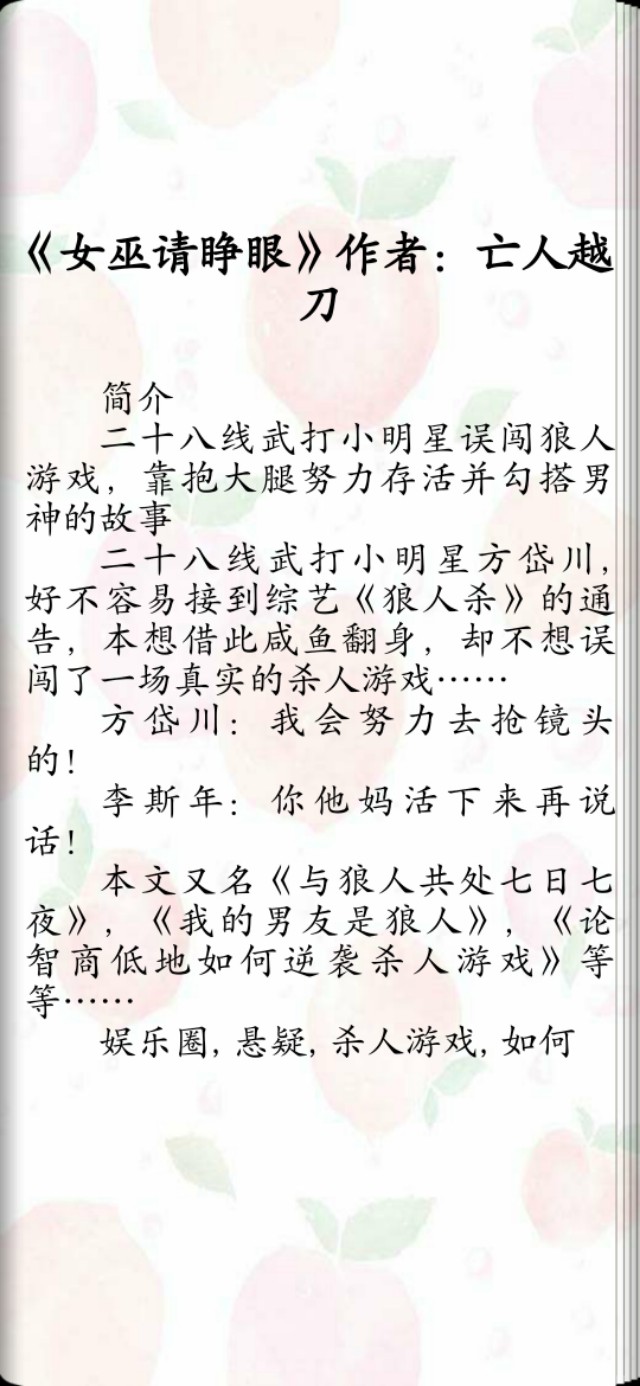 《女巫请睁眼》作者：亡人越
刀
简介
二十八线武打小明星误闯狼人
游戏，靠抱大腿努力存活并勾搭男
神的故事
二十八线武打小明星方岱川，
好不容易接到综艺《狼人杀》的通
告，本想借此咸鱼翻身，却不想误
闯了一场真实的杀人游戏……
方岱川：我会努力去抢镜头
的！
李斯年：你他妈活下来再说
话！
本文又名《与狼人共处七日七
夜》，《我的男友是狼人》，《论
智商低地如何逆袭杀人游戏》等
等……
娱乐圈, 悬疑, 杀人游戏, 如何